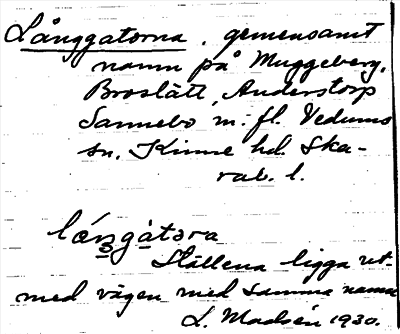 Långgatorna, gemensamt
namn på Muggeberg,
Broslätt, Anderstorp
Sannebo m. fl. Vedums
sn. Kinne hd. Ska-
rab. l.
Ställena ligga ut-
med vägen med samma namn
L. Madsén 1930.